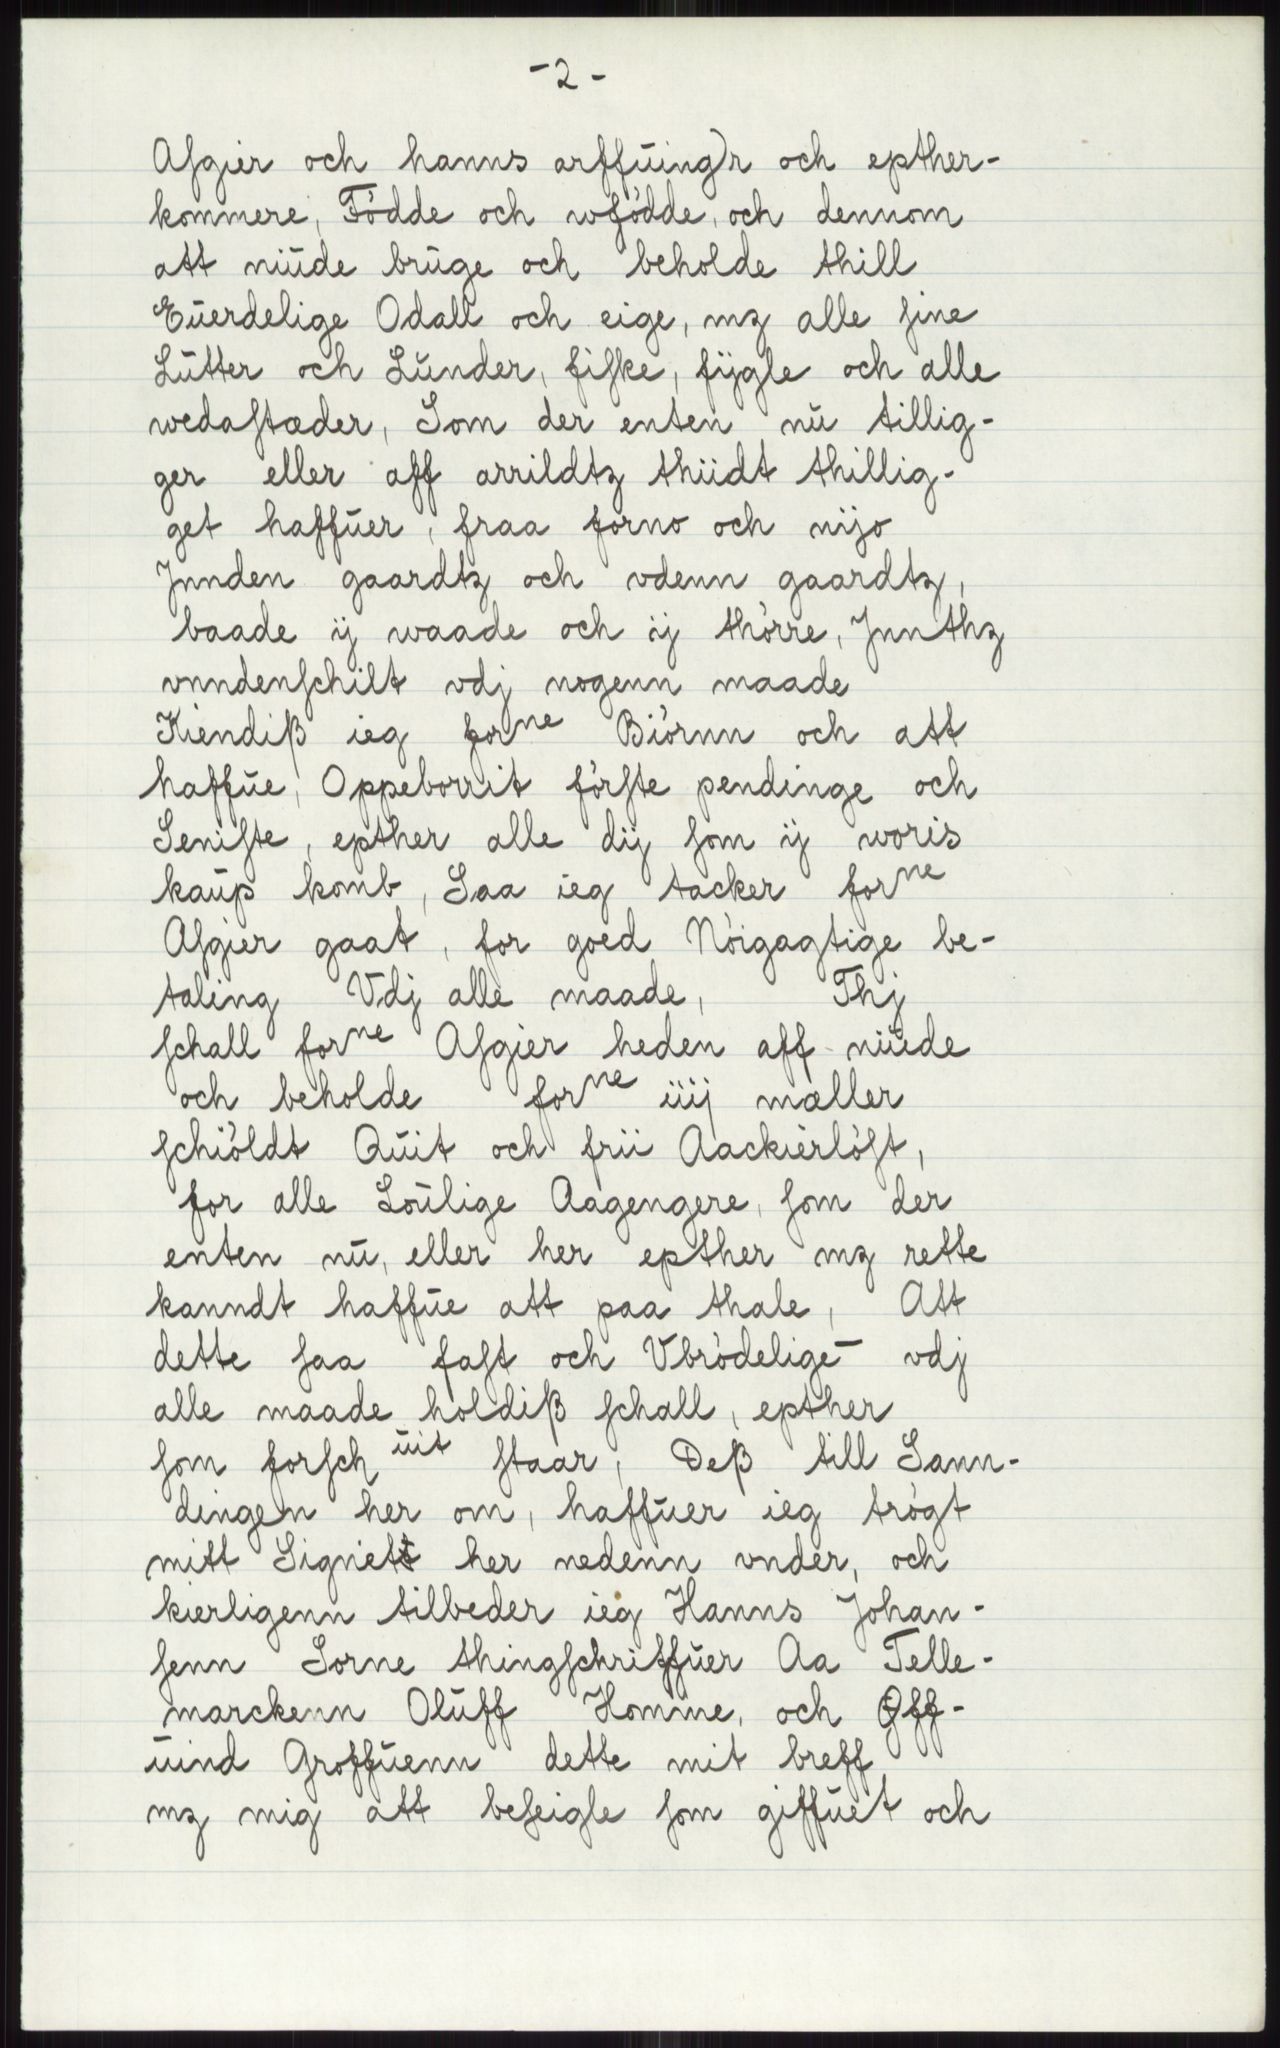 - 2 -
Asgier och hanns arffuing)r och epther-
kommere, Fødde och wfødde, och dennom
att niude bruge och beholde thill
Euerdelige Odall och eige, mz alle sine
Lutter och Lunder, fiske, fÿgle och alle
wedastæder, Som der enten nu tillig-
ger eller aff arrildtz thiidt thillig-
get haffuer, fraa forno och nijo
Jnnden gaardtz och vdenn gaardtz,
baade ij waade och ij thørre, Jnnthz
vnndenschilt vdj nogenn maade
Kiendiß ieg forne Biørnn och att
haffue, Oppeborrit første pendinge och
Seniste, epther alle dij som ij woris
kaup komb, Saa ieg tacker forne
Asgier gaat, for goed Nøigagtige be-
taling Vdj alle maade, Thj
schall forne Asgier heden aff niude
och beholde forne iiij mæller
schiøldt Quit och frii Aackierløst,
for alle Loulige Aagengere, som der
enten nu, eller her epther mz rette
kanndt haffue att paa thale, Att
dette saa fast och Vbrødelige vdj
alle maade holdiß schall, epther
som forsch uit staar, Deß till Sann-
dingen her om, haffuer ieg trøgt
mitt Signett her nedenn vnder, och
kierligenn tilbeder ieg Hanns Johan-
senn Sorne thingschriffuer Aa Telle-
marckenn Oluff Homme, och Øff-
uind Groffuenn dette mit breff
mz mig att beseigle som giffuet och